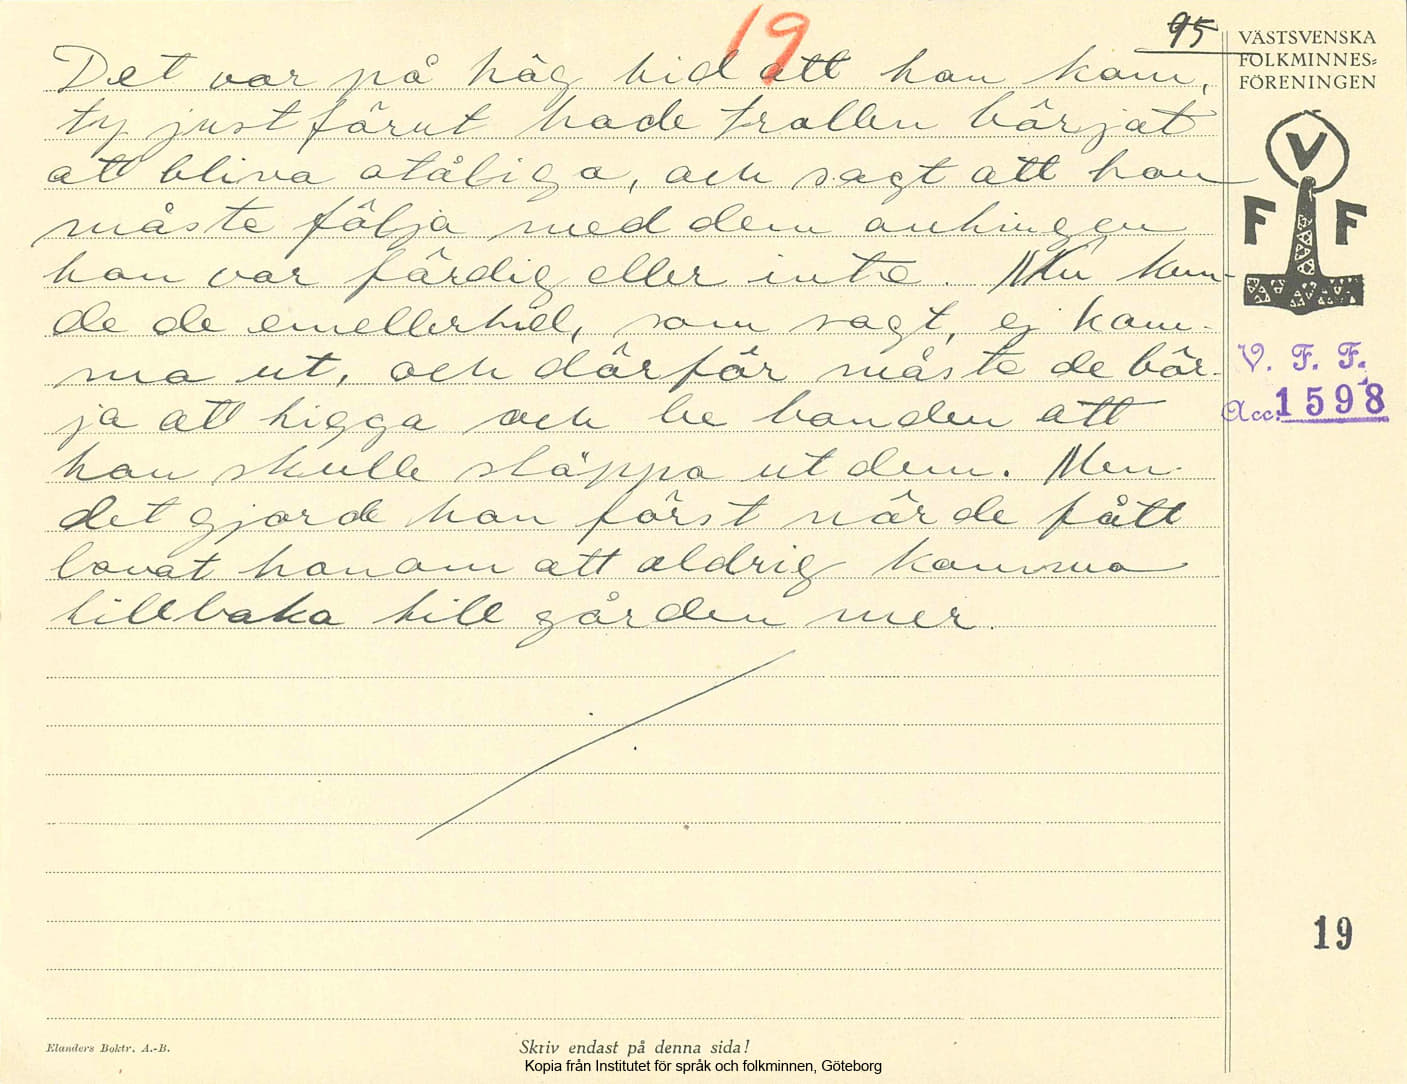 19
95
Det var på hög tid att han kom,
ty just förut hade trollen börjat
att bliva otåliga, och sagt att han
måste följa med dem antingen
han var färdig eller inte. Nu kun-
de de emellertid, som sagt, ej kom-
ma ut, och därför måste de bör-
ja att tigga och be bonden att
han skulle släppa ut dem. Men
det gjorde han först när de fått
lovat honom att aldrig komma
tillbaka till gården mer.
VÄSTSVENSKA
FOLKMINNES=
FÖRENINGEN
V
F F
V. F. F.
Acc. 1598
19
Elanders Boktr. A.-B.
Skriv endast på denna sida!
Kopia från Institutet för språk och folkminnen, Göteborg